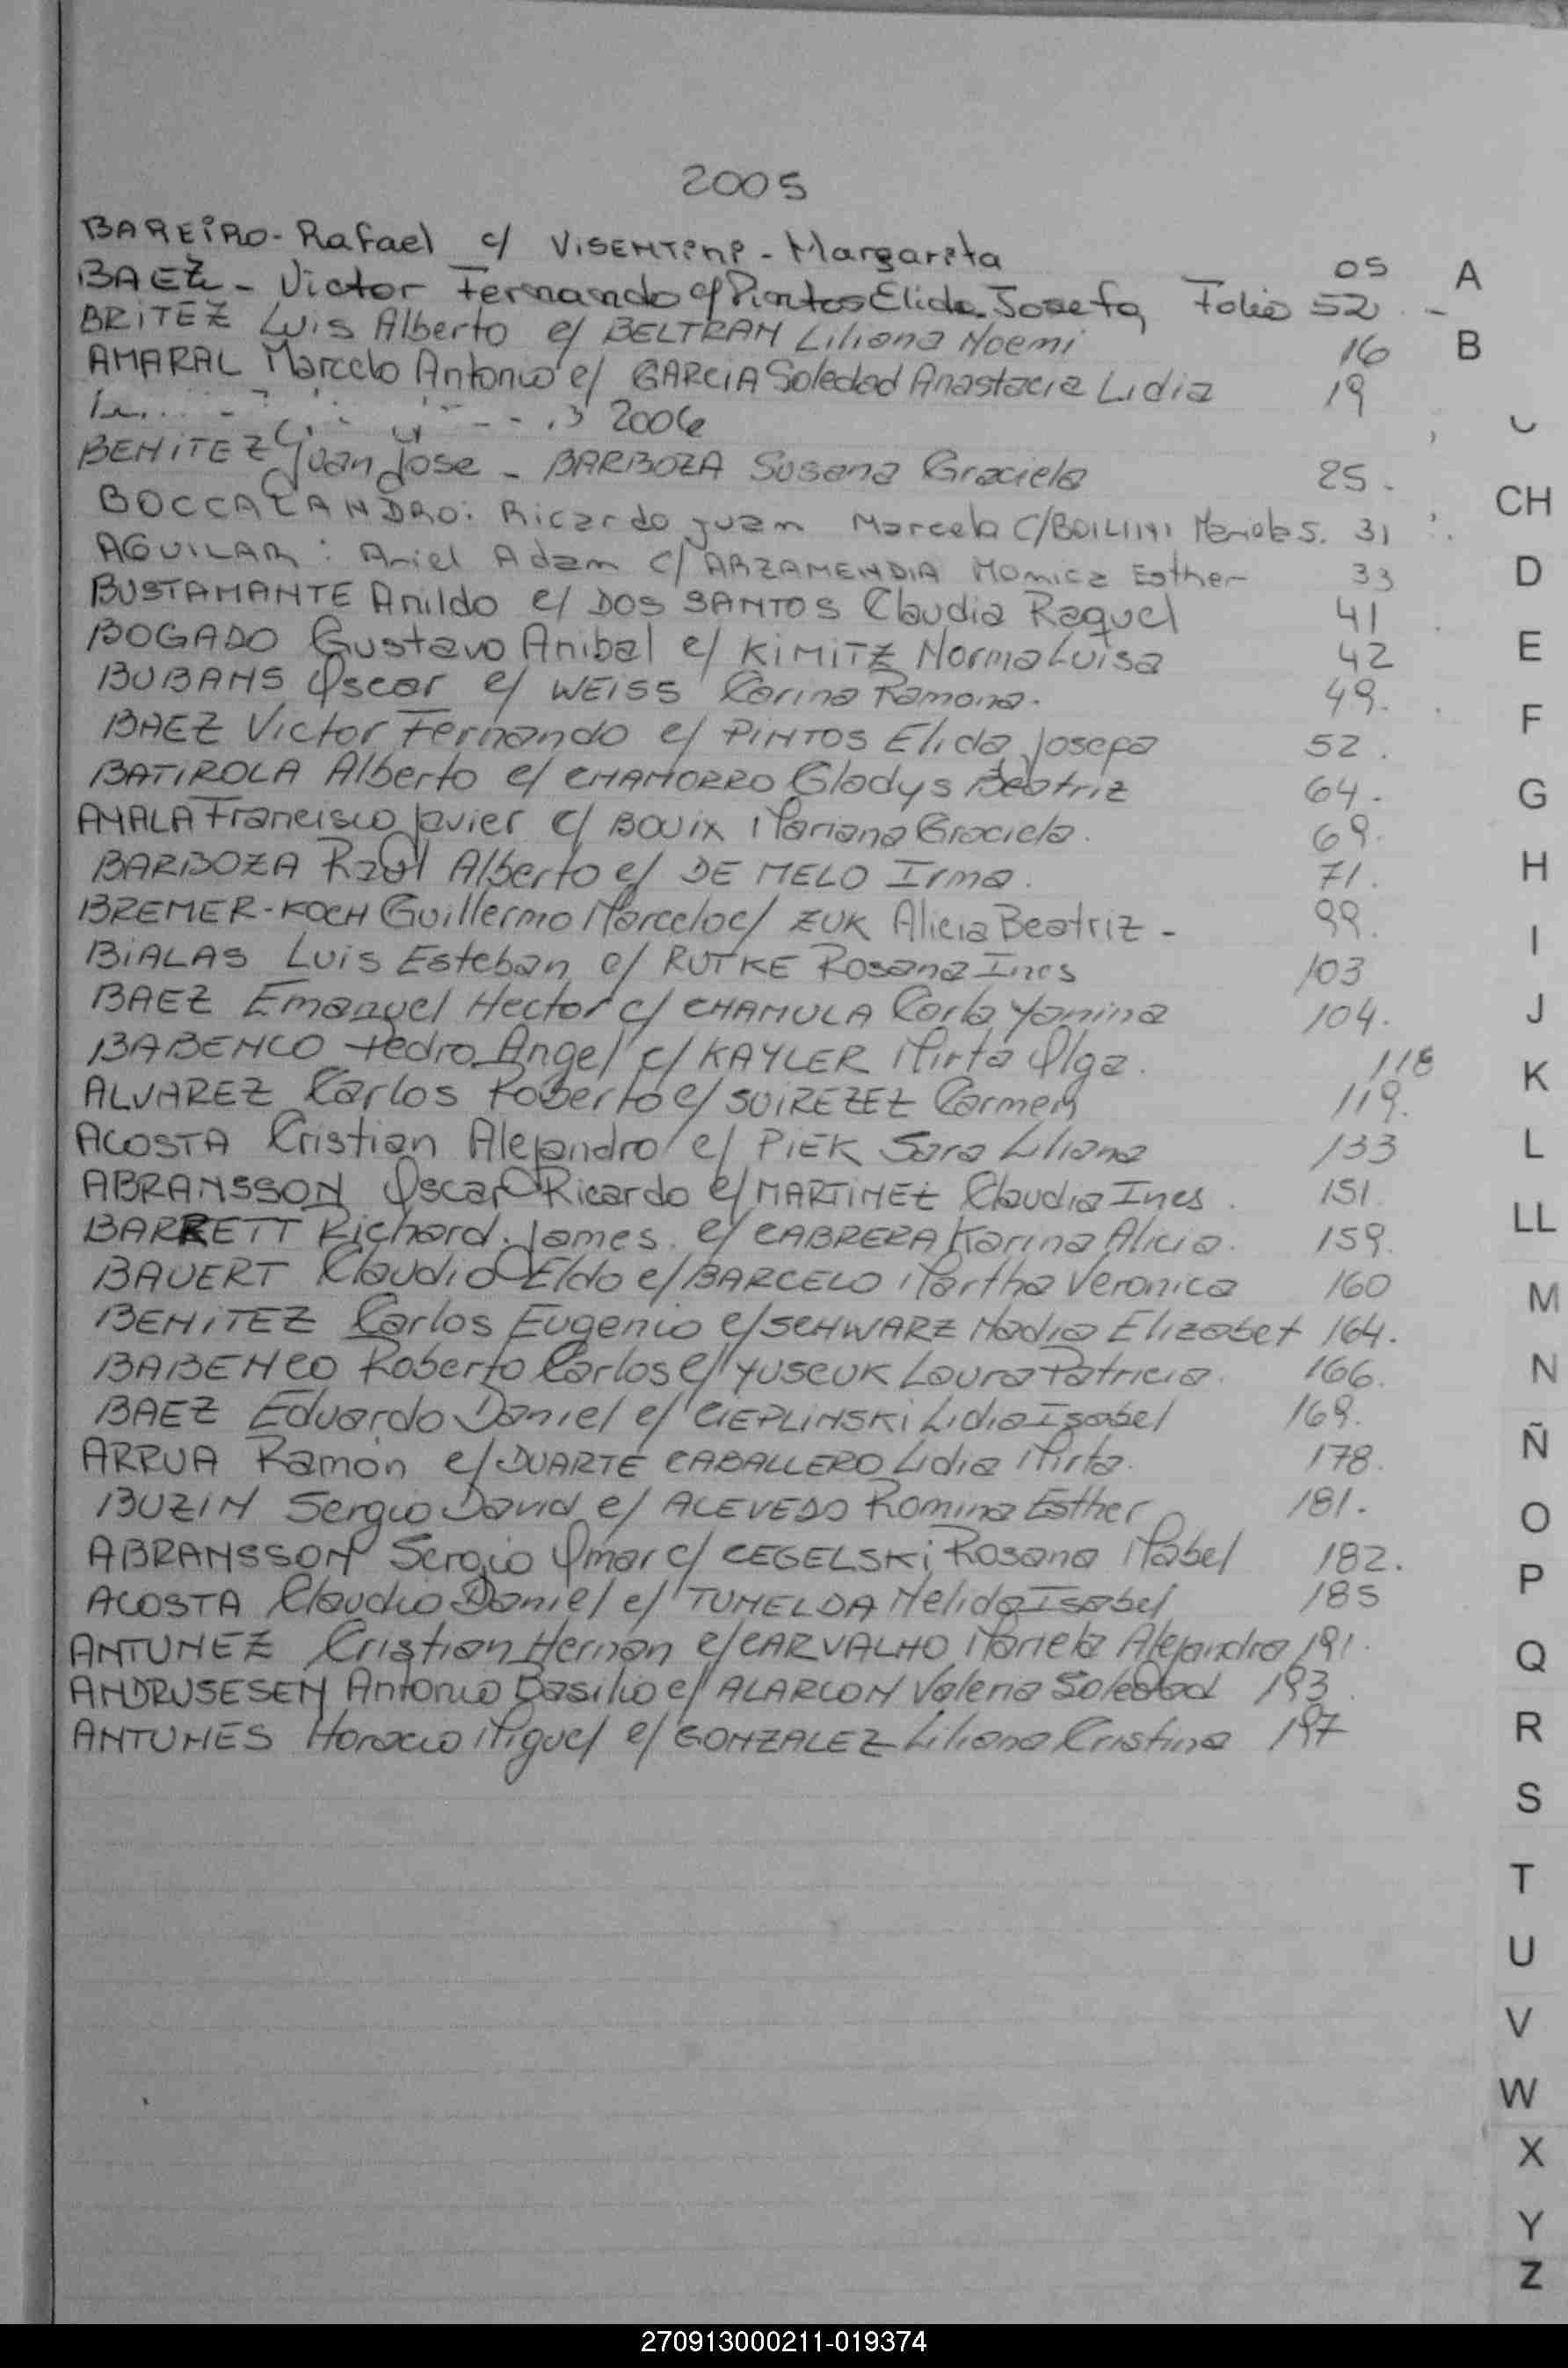 2005
BAREIRO - Rafael c/ VISENTINI - Margarita 05
BAEZ - Victor Fernando c/ Pintos Elida Josefa Folio 52 -
BRITEZ Luis Alberto c/ BELTRAN Liliana Noemi 16
AMARAL Marcelo Antonio c/ GARCIA Soledad Anastacia Lidia 19
2006
BENITEZ Juan Jose - BARBOZA Susana Graciela 25.
BOCCALANDRO: Ricardo Juan Marcelo C/ 31
AGUILAR: Ariel Adam C/ ARZAMENDIA Monica Esther 33
BUSTAMANTE Anildo c/ DOS SANTOS Claudia Raquel 41
BOGADO Gustavo Anibal c/ KIMITZ Norma Luisa 42
BUBANS Oscar c/ WEISS Carina Ramona. 49.
BAEZ Victor Fernando c/ PINTOS Elida Josefa 52.
BATIROLA Alberto c/ CHAMORRO Gladys Beatriz 64.
AYALA Francisco Javier c/ BOUIX Mariana Graciela. 69.
BARBOZA Raul Alberto c/ DE MELO Irma. 71.
BREMER-KOCH Guillermo Marcelo c/ ZUK Alicia Beatriz - 99.
BIALAS Luis Esteban c/ RUTKE Rosana Ines 103
BAEZ Emanuel Hector c/ CHAMULA Carla Yanina 104.
BABENCO Pedro Angel c/ KAYLER Mirta Olga. 118
ALVAREZ Carlos Roberto c/ SUIREZEZ Carmen 119.
ACOSTA Cristian Alejandro c/ PIEK Sara Liliana 133
ABRANSSON Oscar Ricardo c/ MARTINEZ Claudia Ines. 151.
BARRETT Richard James. c/ CABRERA Karina Alicia. 159.
BAUERT Claudio Eldo c/ BARCELO Martha Veronica 160
BENITEZ Carlos Eugenio c/ SCHWARZ Nadia Elizabet 164.
BABENCO Roberto Carlos c/ YUSCUK Laura Patricia. 166.
BAEZ Eduardo Daniel c/ CIEPLINSKI Lidia Isabel 169.
ARRUA Ramón c/ DUARTE CABALLERO Lidia Mirta. 178.
BUZIN Sergio David c/ ACEVEDO Romina Esther 181.
ABRANSSON Sergio Omar c/ CEGELSKI Rosana Mabel 182.
ACOSTA Claudio Daniel c/ TUMELDA Nelida Isabel 185
ANTUNEZ Cristian Hernan c/ CARVALHO Mariela Alejandra 191.
ANDRUSESEN Antonio Basilio c/ ALARCON Valeria Soledad 193.
ANTUNES Horacio Miguel c/ GONZALEZ Liliana Cristina 197
A
B
CH
D
E
F
G
H
I
J
K
L
LL
M
N
Ñ
O
P
Q
R
S
T
U
V
W
X
Y
Z
270913000211-019374